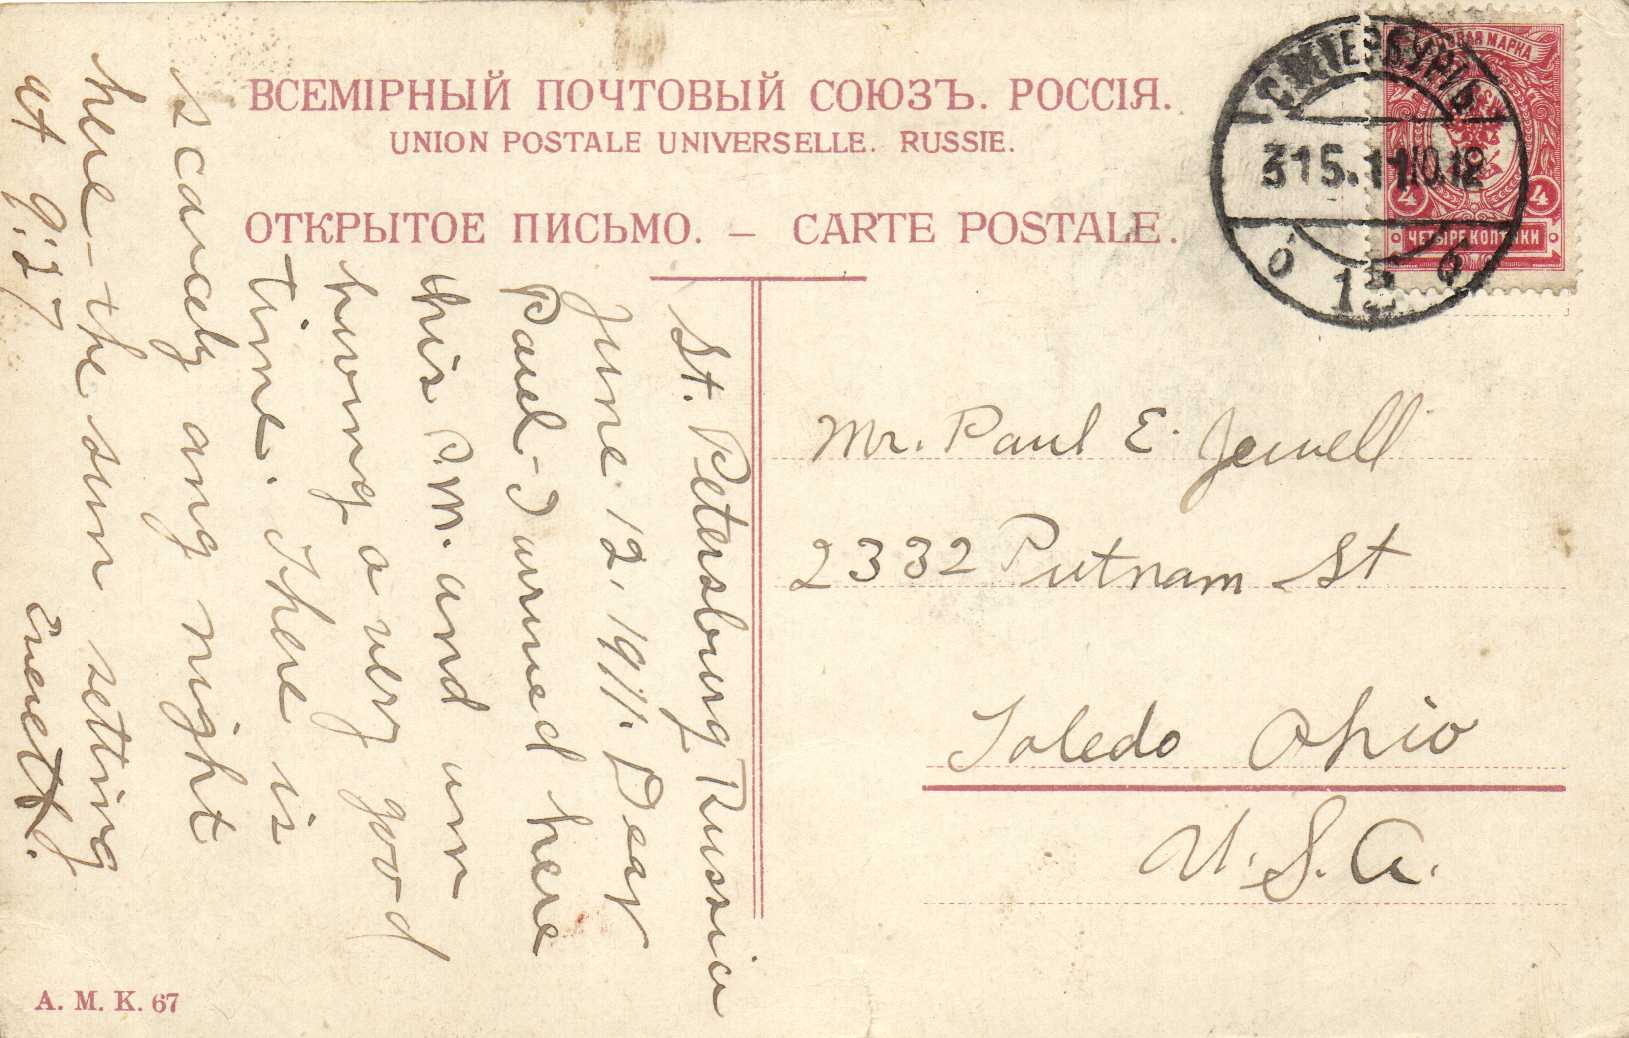 ВСЕМІРНЫЙ ПОЧТОВЫЙ СОЮЗЪ. РОССІЯ.
UNION POSTALE UNIVERSELLE. RUSSIE.
ОТКРЫТОЕ ПИСЬМО. – CARTE POSTALE.
МАРКА
4 4
ЧЕТЫРЕ КОПѢЙКИ
С.ПЕТЕРБУРГЪ
315.11
12
St. Petersburg Russia
June 12, 1911. Dear
Paul - I arrived here
this P.M. and am
having a very good
time. There is
scarcely any night
here - the sun setting
at 9:27
Mr. Paul E. Jewell
2332 Putnam St
Toledo Ohio
U.S.A.
А. М. К. 67